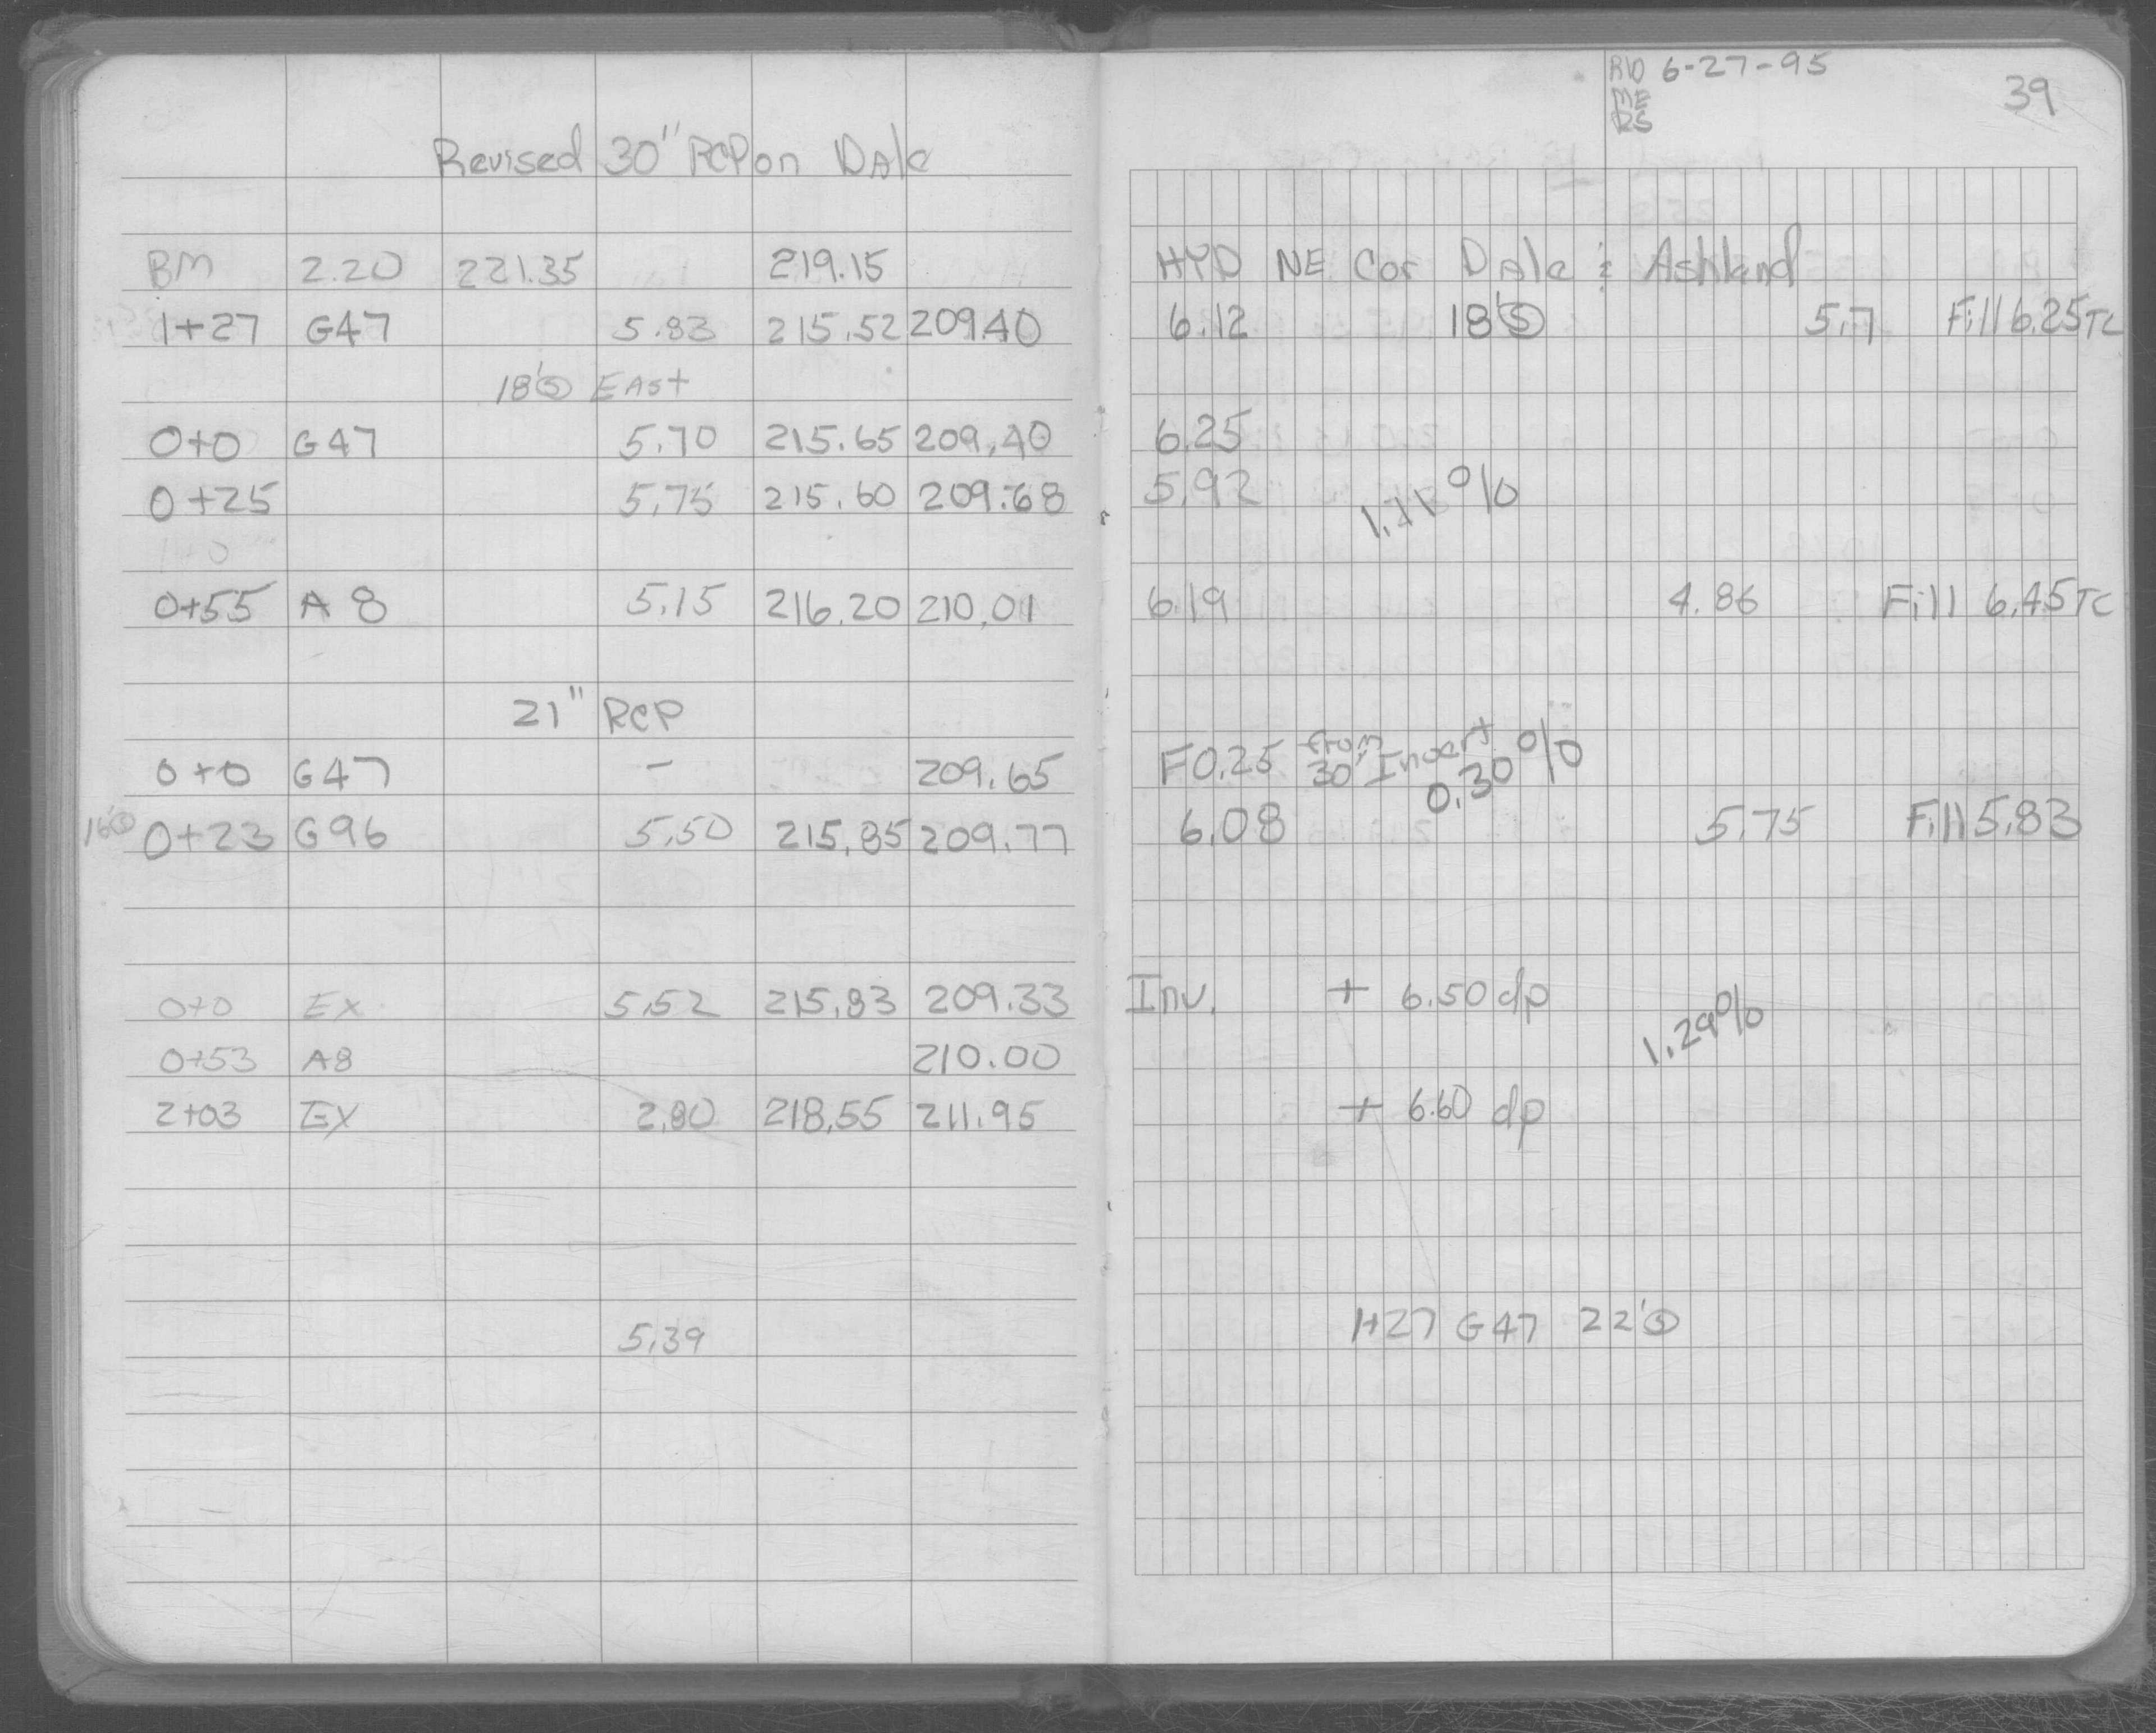 RW 6-27-95
ME
RS
39
Revised 30" RCP on DAle
BM 2.20 221.35 219.15 HYD NE Cor DAle & Ashland
1+27 G47 5.83 215.52 209.40 6.12 18'Ⓢ 5.7 Fill 6.25 TC
18'Ⓢ EAst
0+0 G47 5.70 215.65 209.40 6.25
0+25 5.75 215.60 209.68 5.92 1.11%
1+0
0+55 A8 5.15 216.20 210.01 6.19 4.86 Fill 6.45 TC
21" RCP
0+0 G47 - 209.65 F0.25 from 30" Invert 0.30%
0+23 G96 5.50 215.85 209.77 6.08 5.75 Fill 5.83
0+0 Ex 5.52 215.83 209.33 Inv. + 6.50 dp
0+53 A8 210.00 1.29%
2+03 EX 2.80 218.55 211.95 + 6.60 dp
5.39 1+27 G47 22'Ⓢ